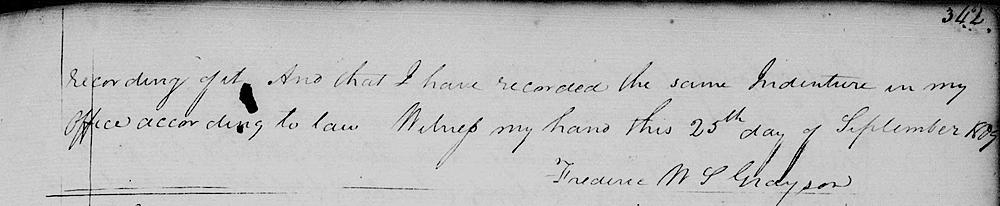 342.
recording of it And that I have recorded the same Indenture in my
Office according to law Witness my hand this 25th day of September 1809
Frederic W S Grayson